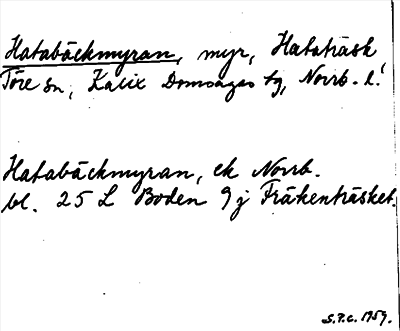 Hatabäckmyran, myr, Hataträsk
Töre sn, Kalix Domsagas tg, Norrb. l.
Hatabäckmyran, ek Norrb.
bl. 25 L Boden 9 j Fräkenträsket.
S.P.C. 1959.